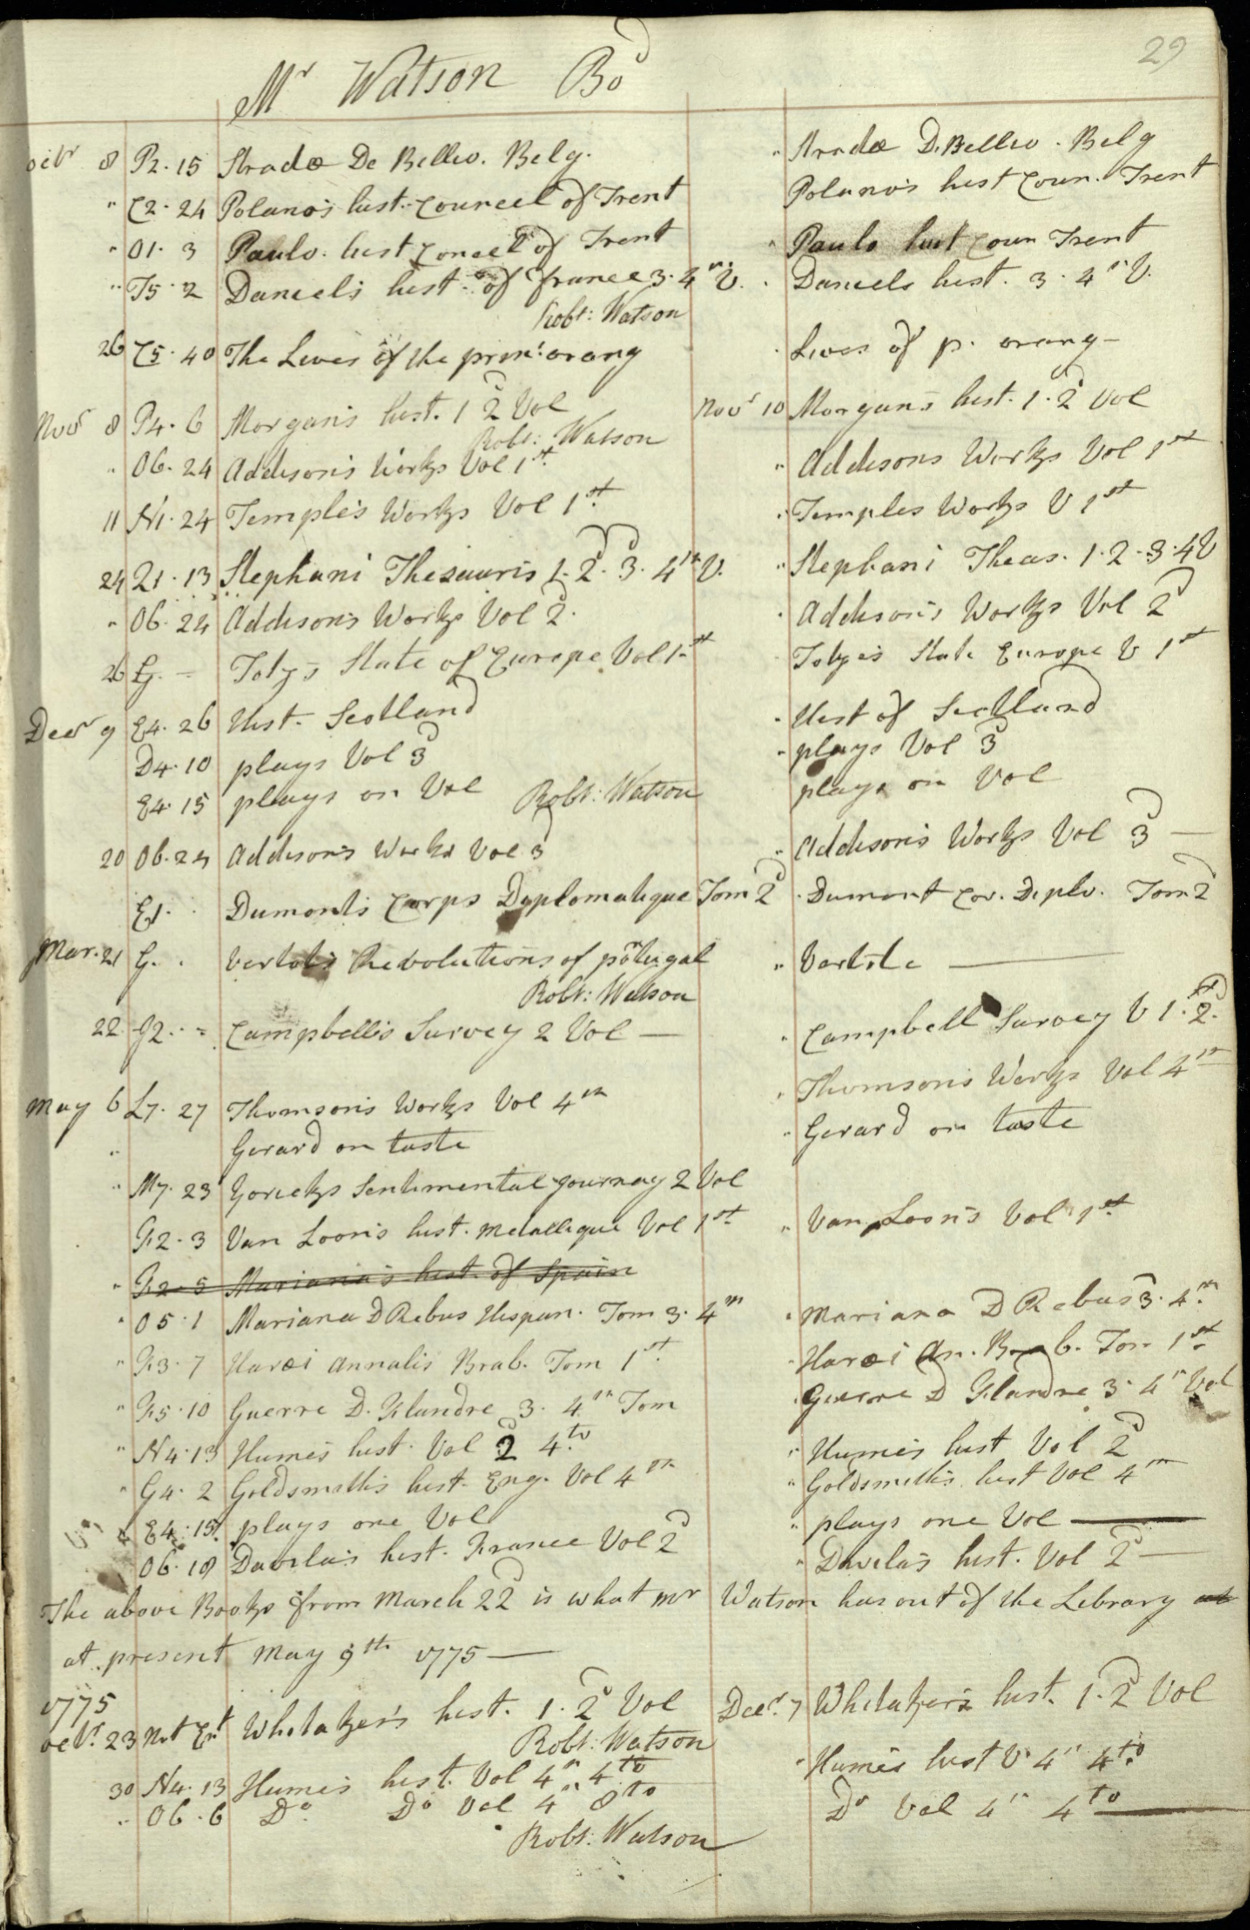 29
Mr Watson Bod
Octr 8 P2.15 Strada De Bellio. Belg. " Strada D. Bellio. Belg
" C2.24 Polano's hist. Councel of Trent Polano's hist Coun. Trent
" O1.3 Paulo. hist Concel of Trent " Paulo hist Coun Trent
" T5.2 Daniel's hist. of france 3. 4th V. . Daniels hist. 3. 4th V.
Robt: Watson
26 C5.40 The Lives of the prin: orang . Lives of p. orang
Novr 8 P4.6 Morgan's hist. 1 2d Vol Novr 10 Morgan's hist. 1. 2d Vol
Robt: Watson
" O6.24 Addison's Works Vol 1st " Addisons Works Vol 1st
11 N1.24 Temple's Works Vol 1st " Temples Works V 1st
24 21.13 Stephani Thesauris 1. 2d. 3d. 4th V. " Stephani Theas. 1. 2. 3. 4 V
" O6.24 Addison's Works Vol 2d. . Addison's Works Vol 2d
26 G. - State of Europe Vol 1st State Europe V 1st
Decr 9 E4.26 Hist. Scotland . Hist of Scotland
D4.10 plays Vol 3d " plays Vol 3d
E4.15 plays on Vol plays on Vol
Robt: Watson
20 O6.24 Addison's Works Vol 3d " Addison's Works Vol 3d —
E1. Dumont's Corps Diplomatique Tom 2d . Dumont Cor. Diplo. Tom 2d
Mar. 21 G. . Vertot's Revolutions of portugal " Vertots —
Robt: Watson
22 J2. - Campbell's Survey 2 Vol — . Campbell Survey V 1. 2d.
May 6 L7.27 Thomson's Works Vol 4th . Thomson's Works Vol 4th
" Gerard on taste " Gerard on taste
" M7.23 Yoricks Sentimental journay 2 Vol
F2.3 Van Loon's hist. metallique Vol 1st " Van Loon's Vol 1st
" F2.5 Mariana's hist. of Spain
" O5.1 Mariana D Rebus Hispan. Tom 3. 4th " Mariana D Rebus 3. 4th
" F3.7 Haræi Annalis Brab. Tom 1st . Haræi An. Brab. Tom 1st
" F5.10 Guerre D. Flandre 3. 4th Tom . Guerre D Flandre 3. 4th Vol
" N4.13 Hume's hist. Vol 2d 4to " Hume's hist Vol 2d
" G4.2 Goldsmith's hist. Eng. Vol 4th " Goldsmith's hist Vol 4th
" E4.15 plays one Vol " plays one Vol —
O6.18 Davila's hist. France Vol 2d " Davila's hist. Vol 2d —
The above Books from March 22d is what mr Watson has out of the Library
at present May 9th 1775 —
1775
Octr. 23 Not Ent Whitaker's hist. 1. 2d Vol Decr. 7 Whitaker's hist. 1. 2d Vol
Robt: Watson
30 N4.13 Hume's hist. Vol 4th 4to " Hume's hist V 4th 4to
" O6.6 Do Do Vol 4th 8to Do Vol 4th 4to —
Robt: Watson